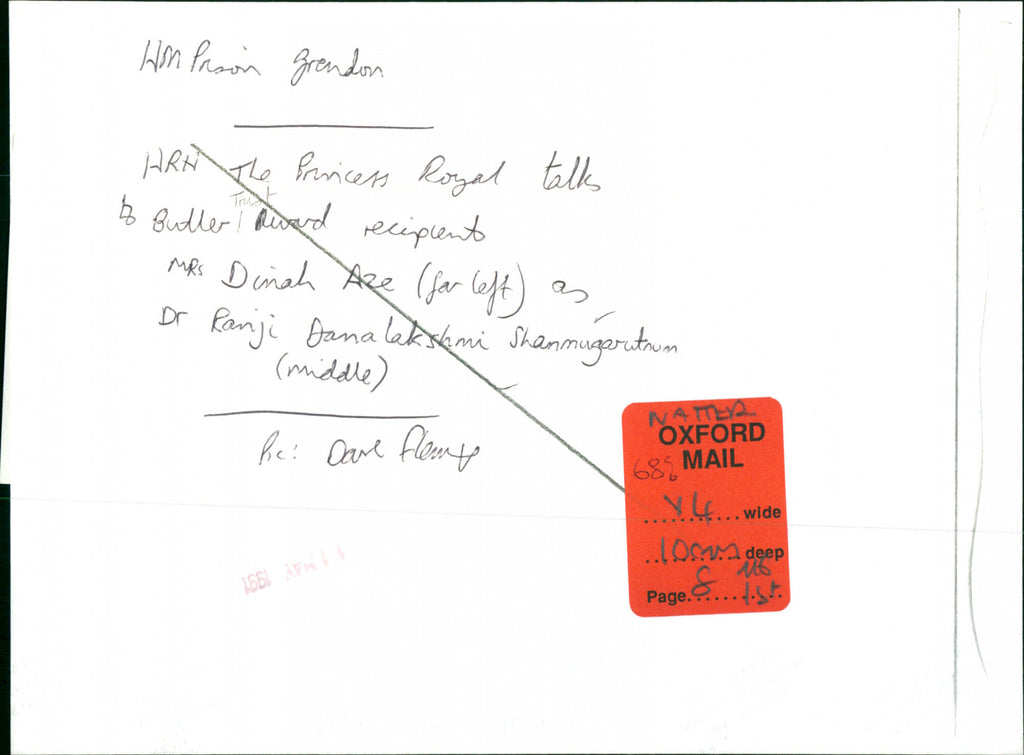 HM Prison Grendon
HRH The Princess Royal talks
Trust
to Butler / Award recipients
MRS Dinah Aze (far left) as
Dr Ranji Danalakshmi Shanmugarutnum
(middle)
Pic: Dave
NATTER
OXFORD
MAIL
68%
x4 wide
10cms deep
Page 8 1st
MAY 1991